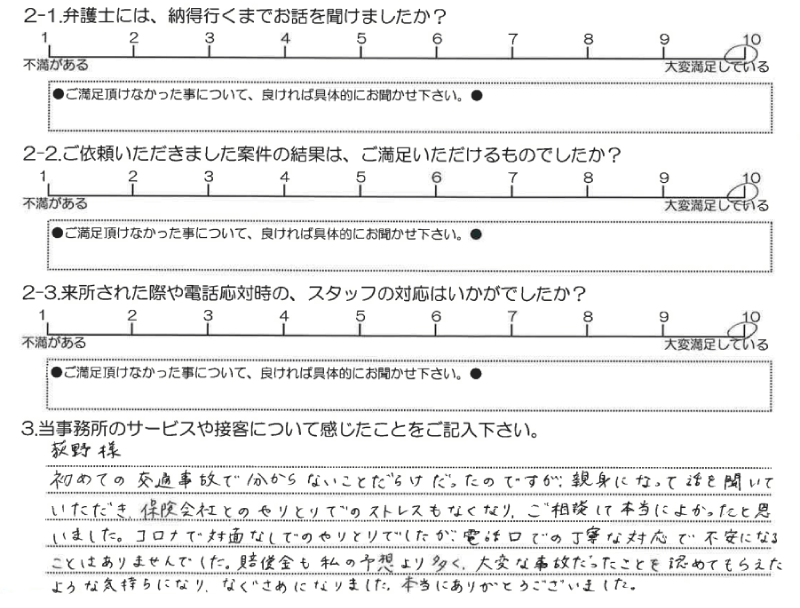 2-1.弁護士には、納得行くまでお話を聞けましたか？
1 2 3 4 5 6 7 8 9 10
不満がある 大変満足している
●ご満足頂けなかった事について、良ければ具体的にお聞かせ下さい。●
2-2.ご依頼いただきました案件の結果は、ご満足いただけるものでしたか？
1 2 3 4 5 6 7 8 9 10
不満がある 大変満足している
●ご満足頂けなかった事について、良ければ具体的にお聞かせ下さい。●
2-3.来所された際や電話応対時の、スタッフの対応はいかがでしたか？
1 2 3 4 5 6 7 8 9 10
不満がある 大変満足している
●ご満足頂けなかった事について、良ければ具体的にお聞かせ下さい。●
3.当事務所のサービスや接客について感じたことをご記入下さい。
荻野様
初めての交通事故で分からないことだらけだったのですが、親身になって話を聞いて
いただき、保険会社とのやりとりでのストレスもなくなり、ご相談して本当によかったと思
いました。コロナで対面なしでのやりとりでしたが、電話口での丁寧な対応で不安になる
ことはありませんでした。賠償金も私の予想より多く、大変な事故だったことを認めてもらえた
ような気持ちになり、なぐさめになりました。本当にありがとうございました。